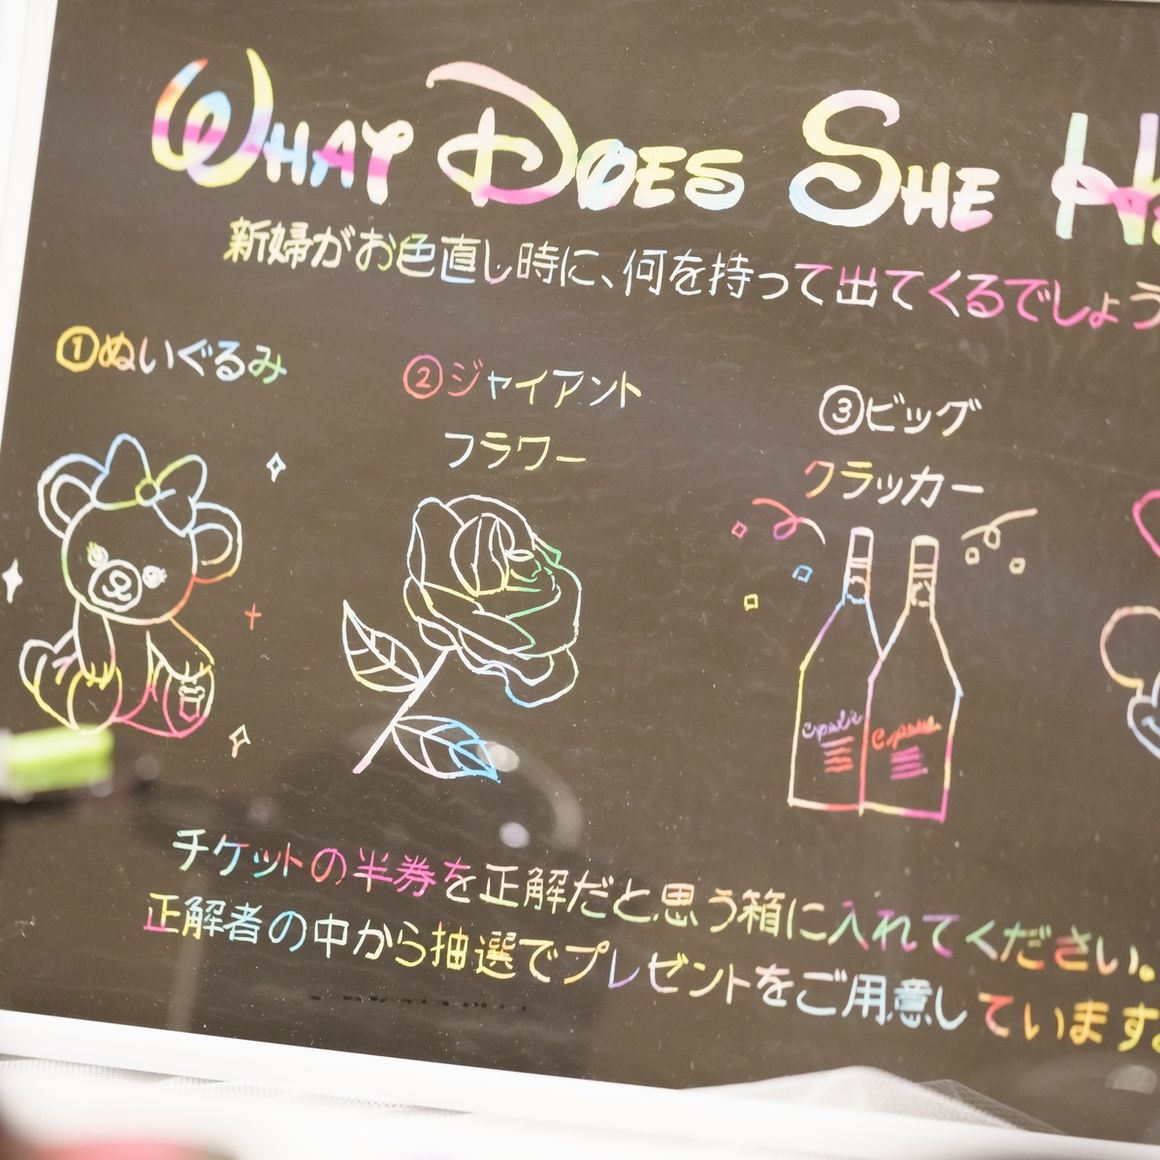 WHAT DOES SHE
新婦がお色直し時に、何を持って出てくるでしょう
①ぬいぐるみ
②ジャイアント
フラワー
③ビッグ
クラッカー
チケットの半券を正解だと思う箱に入れてください。
正解者の中から抽選でプレゼントをご用意しています。